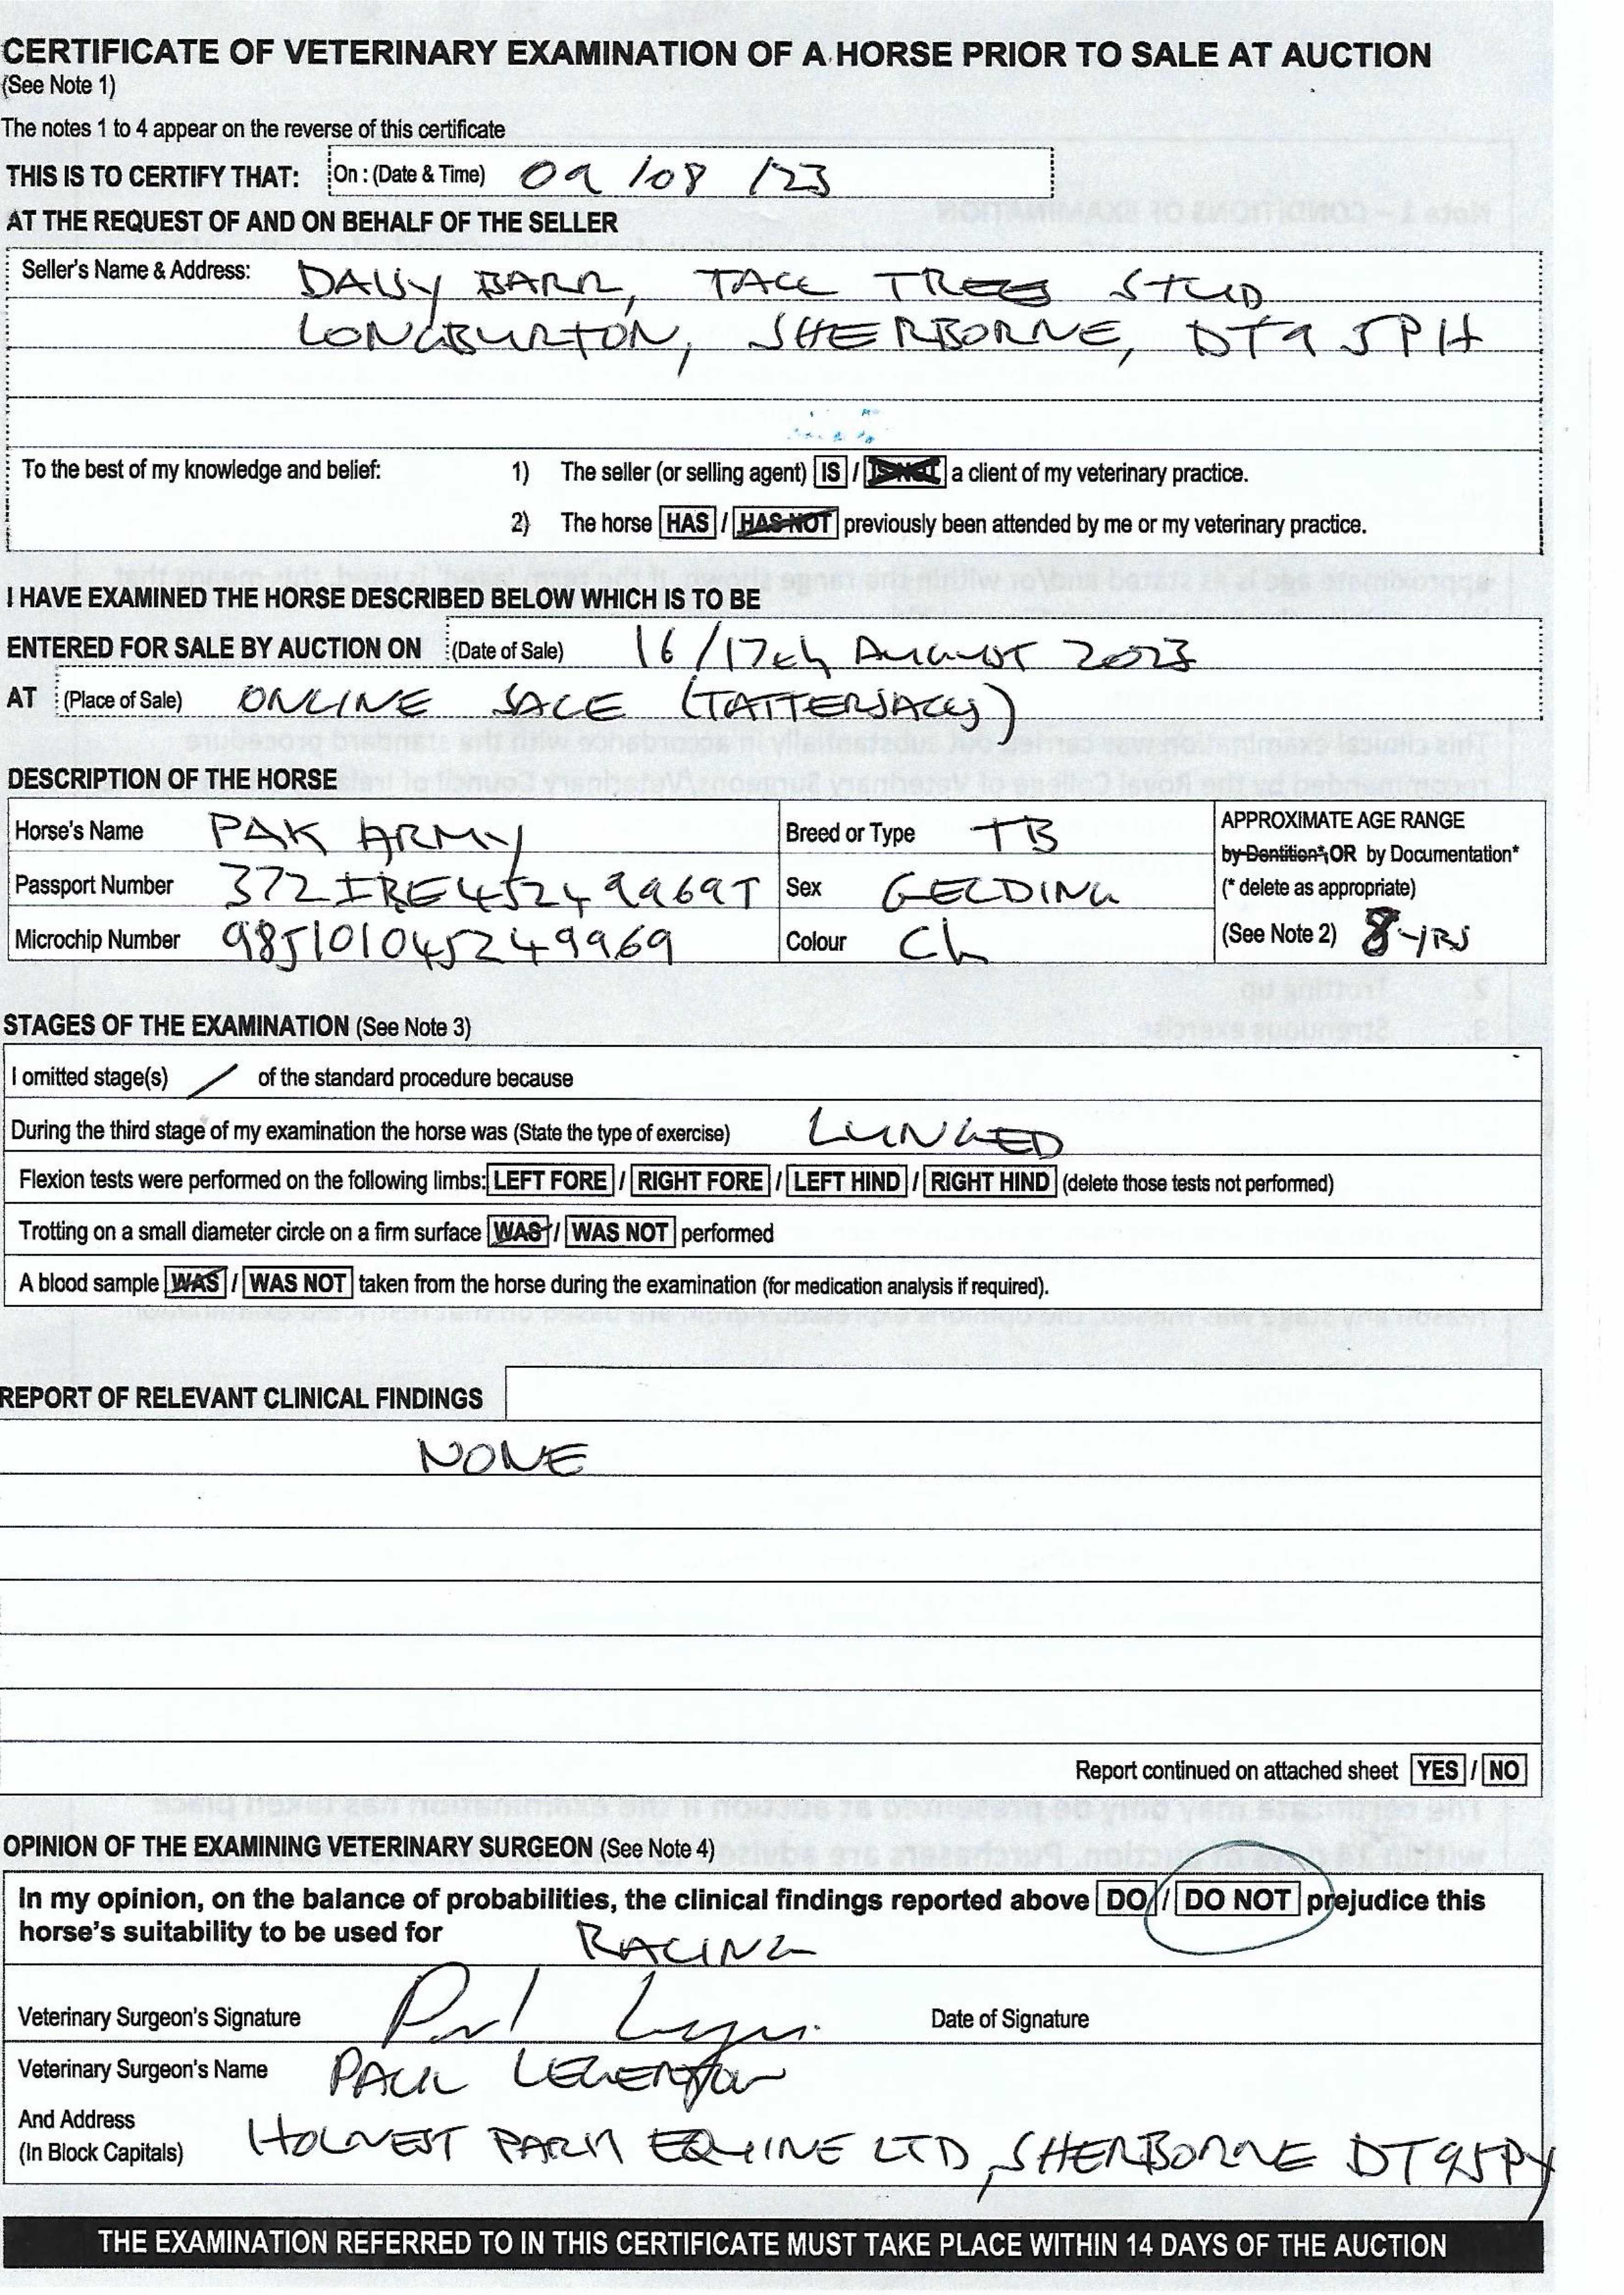 CERTIFICATE OF VETERINARY EXAMINATION OF A HORSE PRIOR TO SALE AT AUCTION
(See Note 1)
The notes 1 to 4 appear on the reverse of this certificate
THIS IS TO CERTIFY THAT: On : (Date & Time) 09/08/23
AT THE REQUEST OF AND ON BEHALF OF THE SELLER
Seller's Name & Address: DAISY BARR, TALL TREES STUD
LONGBURTON, SHERBORNE, DT9 5PH
To the best of my knowledge and belief: 1) The seller (or selling agent) IS / IS NOT a client of my veterinary practice.
2) The horse HAS / HAS NOT previously been attended by me or my veterinary practice.
I HAVE EXAMINED THE HORSE DESCRIBED BELOW WHICH IS TO BE
ENTERED FOR SALE BY AUCTION ON (Date of Sale) 16/17th AUGUST 2023
AT (Place of Sale) ONLINE SALE (TATTERSALLS)
DESCRIPTION OF THE HORSE
Horse's Name PAK ARMY Breed or Type TB APPROXIMATE AGE RANGE
by Dentition* OR by Documentation*
Passport Number 372IRE45249969T Sex GELDING (* delete as appropriate)
Microchip Number 985101045249969 Colour Ch (See Note 2) 8 YRS
STAGES OF THE EXAMINATION (See Note 3)
I omitted stage(s) / of the standard procedure because
During the third stage of my examination the horse was (State the type of exercise) LUNGED
Flexion tests were performed on the following limbs: LEFT FORE / RIGHT FORE / LEFT HIND / RIGHT HIND (delete those tests not performed)
Trotting on a small diameter circle on a firm surface WAS / WAS NOT performed
A blood sample WAS / WAS NOT taken from the horse during the examination (for medication analysis if required).
REPORT OF RELEVANT CLINICAL FINDINGS
NONE
Report continued on attached sheet YES / NO
OPINION OF THE EXAMINING VETERINARY SURGEON (See Note 4)
In my opinion, on the balance of probabilities, the clinical findings reported above DO / DO NOT prejudice this
horse's suitability to be used for RACING
Veterinary Surgeon's Signature Date of Signature
Veterinary Surgeon's Name PAUL
And Address
(In Block Capitals) HOLNEST PARK EQUINE LTD, SHERBORNE DT9 5PY
THE EXAMINATION REFERRED TO IN THIS CERTIFICATE MUST TAKE PLACE WITHIN 14 DAYS OF THE AUCTION